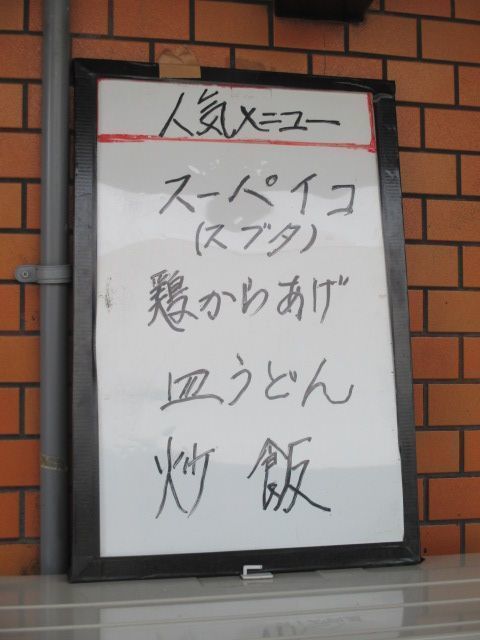 人気メニュー
スーパイコ
(スブタ)
鶏からあげ
皿うどん
炒飯